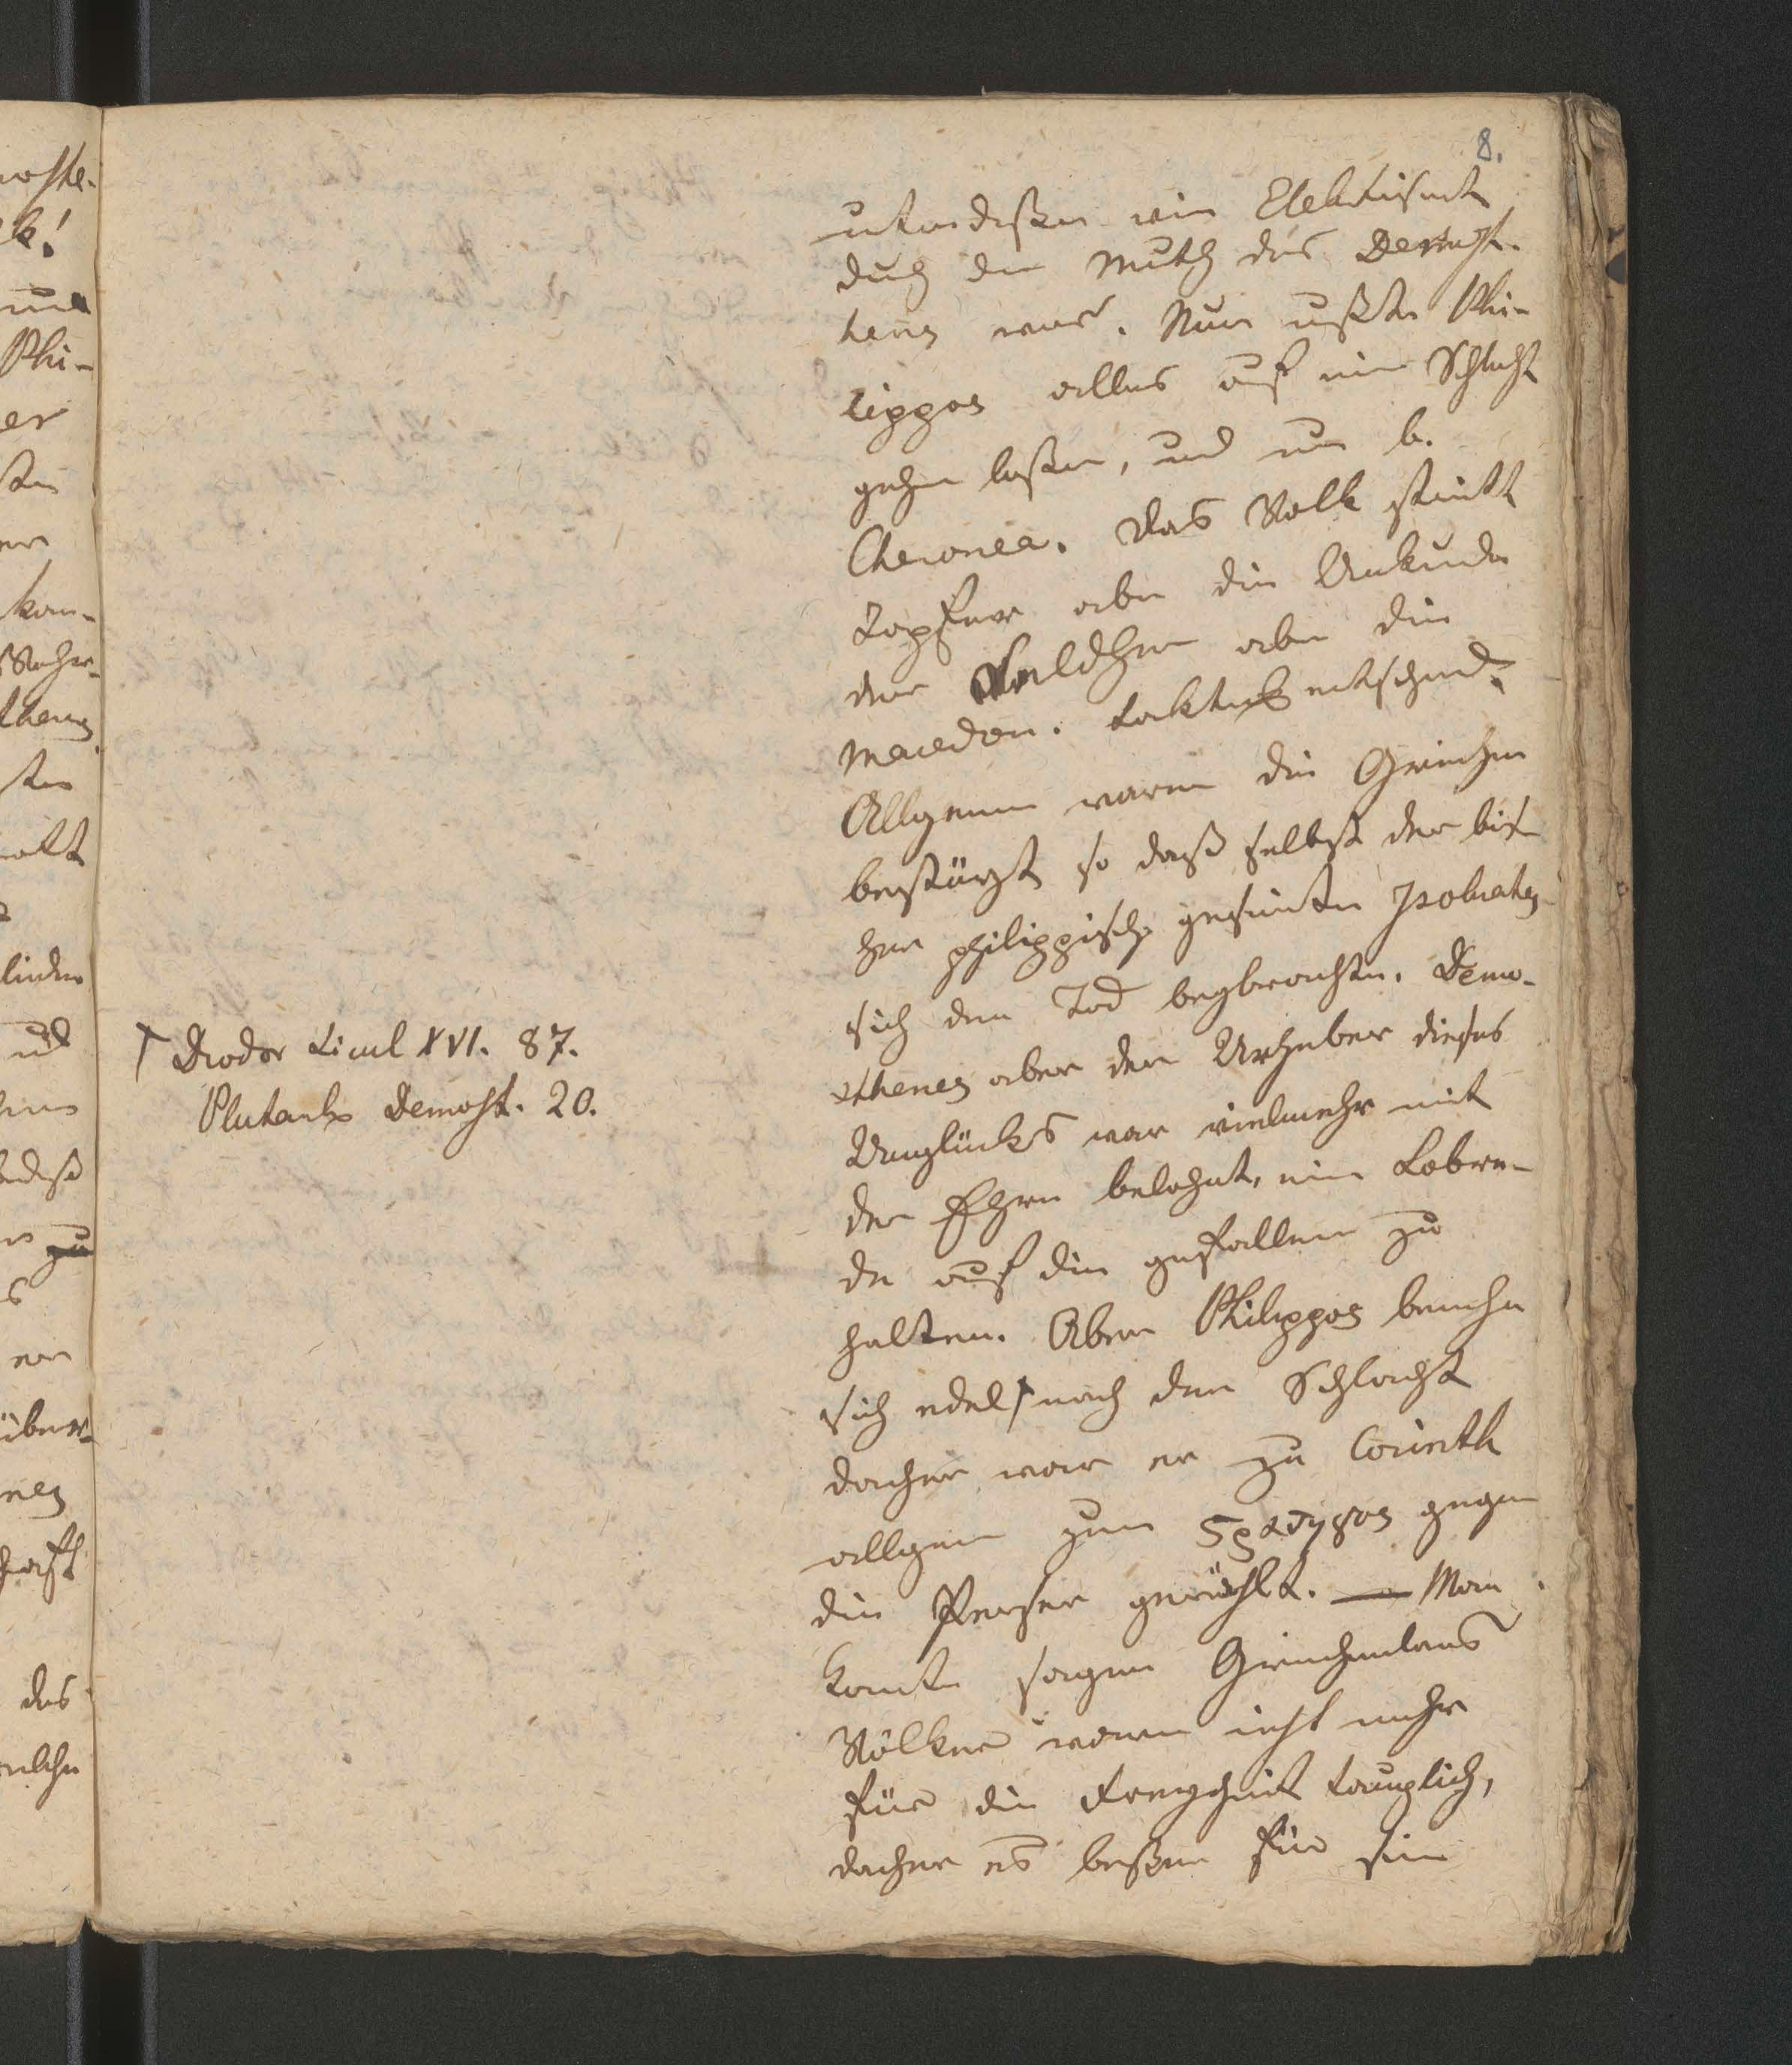 8.
unterdeßen wie Elektrisirt
durch den Muth des Demost-
henes war. Nun mußte Phi-
lippos alles auf eine Schlacht
gehen laßen, und nun b.
Cheronea. Das Volk stritt
tapfer aber die Unkunde
der Feldhrn aber die
Macedon. Taktik entschied.
Allgemein waren die Griechen
bestürzt so daß selbst der bis-
her philippisch gesinnte Isokrates
sich den Tod beybrachte. Demo-
sthenes aber der Urheber dieses
Unglücks war vielmehr mit
der Ehre belohnt, eine Lobre-
de auf die gefallenen zu
halten. Aber Philippos benahm
sich edel † nach der Schlacht
daher war er zu Corinth
allgem zum Σρατηγος gegen
die Perser gewählt. — Man
konnte sagen Griechenlands
Völker waren nicht mehr
für die Freyheit tauglich,
daher es beßer für sie
† Diodor Sicul XVI. 87.
Plutarch Demost. 20.